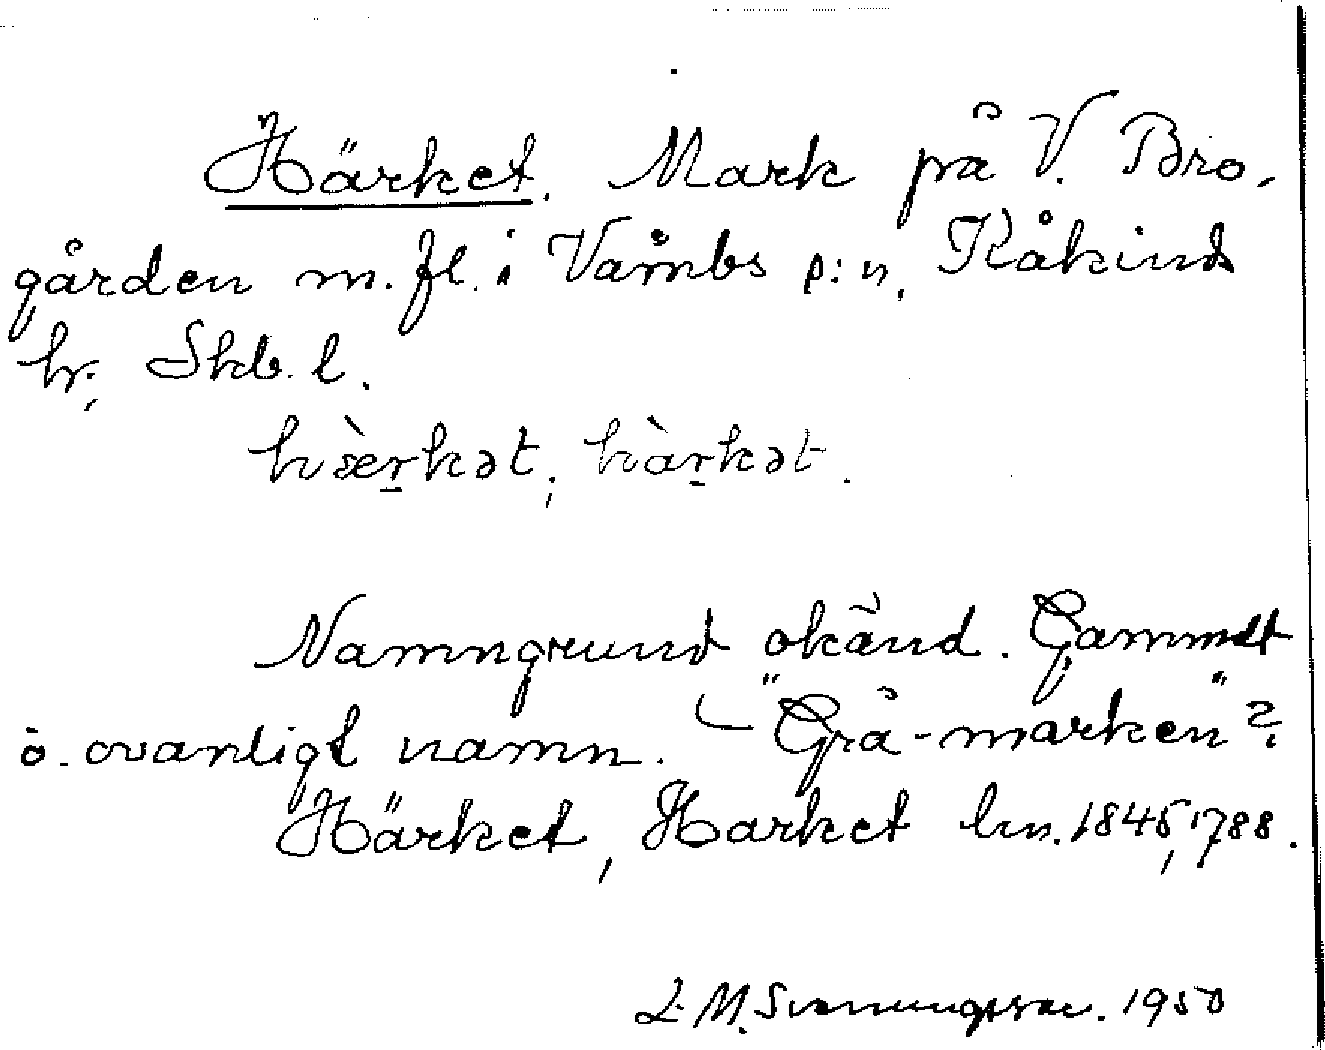 Härket. Mark på V. Bro-
gården m. fl. i Våmbs s:n, Kåkinds
hr, Skb. l.
hæ̀r̠kət, hàr̠kət.
Namngrund okänd. Gammalt
o. ovanligt namn. "Grå-marken"?
Härket, Harket lm. 1845, 1788.
L. M. Svenungsson. 1950